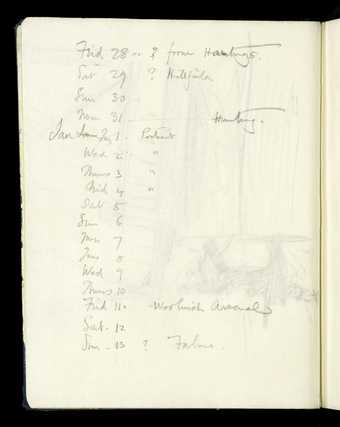 Frid 28 — ? from Hastings.
Sat 29 ?
Sun 30
Mon 31 — Hunting.
Jan Tues 1. Portraits
Wed 2 "
Thurs 3 "
Frid 4 "
Sat 5
Sun 6
Mon 7
Tues 8
Wed 9
Thurs 10
Frid 11. Woolwich Arsenal
Sat. 12
Sun. 13 ?